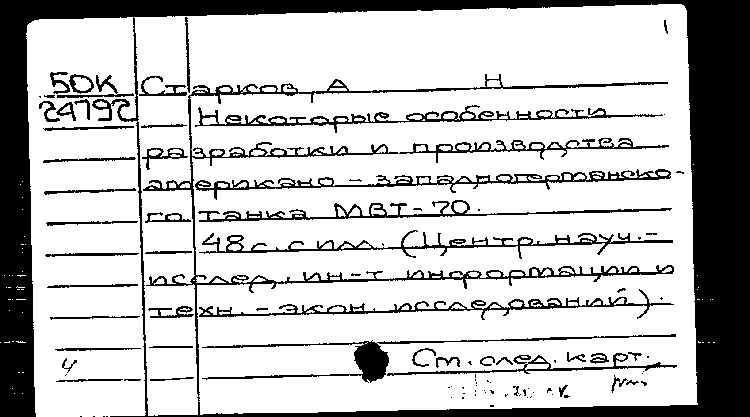 1
50К Старков, А Н
24792 Некоторые особенности
разработки и производства
американо-западногерманско-
го танка МВТ-70.
48с. с илл. (Центр. науч.-
исслед. ин-т информации и
техн.-экон. исследований).
Ч См. след. карт.